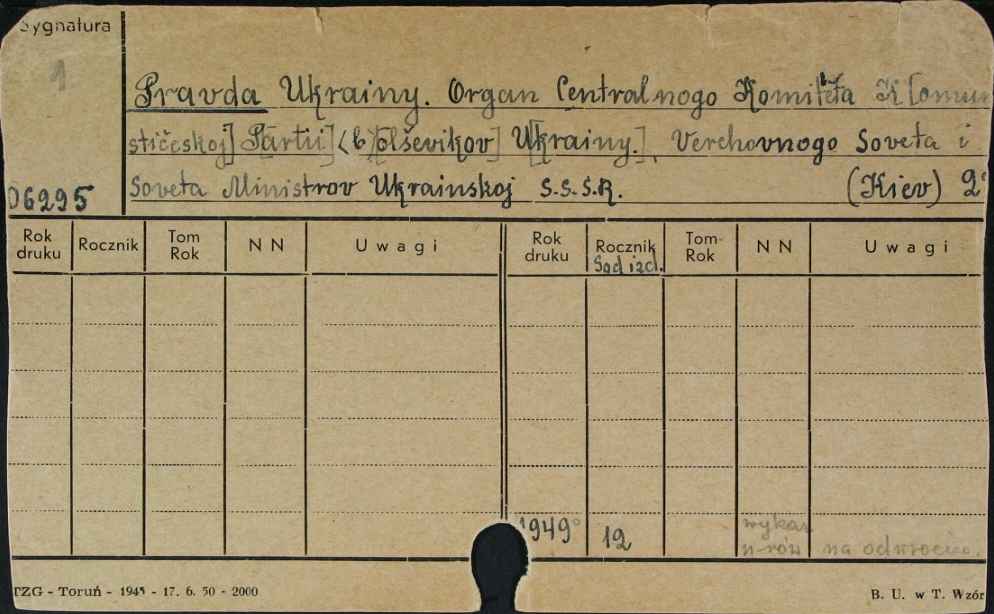 Sygnatura
1
Pravda Ukrainy. Organ Centralnogo Komitéta K[omun
stičeskoj] Partii] <b>[olševikov] Uk[rainy.], Verchovnogo Soveta i
06295 Soveta Ministrov Ukrainskoj S.S.S.R. (Kiev) 2°
Rok druku Rocznik Tom Rok NN Uwagi Rok druku Rocznik God izd. Tom-Rok NN Uwagi
1949° 12 wykaz n-rów na odwrocie.
TZG - Toruń - 1945 - 17. 6. 50 - 2000 B. U. w T. Wzór